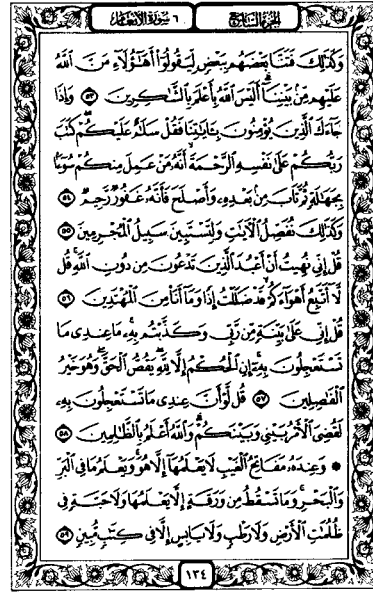 الجزء السابع
٦ سورة الأنعام
وَكَذَٰلِكَ فَتَنَّا بَعْضَهُم بِبَعْضٍ لِّيَقُولُوٓا۟ أَهَٰٓؤُلَآءِ مَنَّ ٱللَّهُ
عَلَيْهِم مِّنۢ بَيْنِنَآ ۗ أَلَيْسَ ٱللَّهُ بِأَعْلَمَ بِٱلشَّٰكِرِينَ ٥٣ وَإِذَا
جَآءَكَ ٱلَّذِينَ يُؤْمِنُونَ بِـَٔايَٰتِنَا فَقُلْ سَلَٰمٌ عَلَيْكُمْ ۖ كَتَبَ
رَبُّكُمْ عَلَىٰ نَفْسِهِ ٱلرَّحْمَةَ ۖ أَنَّهُۥ مَنْ عَمِلَ مِنكُمْ سُوٓءًۢا
بِجَهَٰلَةٍ ثُمَّ تَابَ مِنۢ بَعْدِهِۦ وَأَصْلَحَ فَأَنَّهُۥ غَفُورٌ رَّحِيمٌ ٥٤
وَكَذَٰلِكَ نُفَصِّلُ ٱلْـَٔايَٰتِ وَلِتَسْتَبِينَ سَبِيلُ ٱلْمُجْرِمِينَ ٥٥
قُلْ إِنِّى نُهِيتُ أَنْ أَعْبُدَ ٱلَّذِينَ تَدْعُونَ مِن دُونِ ٱللَّهِ ۚ قُل
لَّآ أَتَّبِعُ أَهْوَآءَكُمْ ۙ قَدْ ضَلَلْتُ إِذًا وَمَآ أَنَا۠ مِنَ ٱلْمُهْتَدِينَ ٥٦
قُلْ إِنِّى عَلَىٰ بَيِّنَةٍ مِّن رَّبِّى وَكَذَّبْتُم بِهِۦ ۚ مَا عِندِى مَا
تَسْتَعْجِلُونَ بِهِۦٓ ۚ إِنِ ٱلْحُكْمُ إِلَّا لِلَّهِ ۖ يَقُصُّ ٱلْحَقَّ ۖ وَهُوَ خَيْرُ
ٱلْفَٰصِلِينَ ٥٧ قُل لَّوْ أَنَّ عِندِى مَا تَسْتَعْجِلُونَ بِهِۦ
لَقُضِىَ ٱلْأَمْرُ بَيْنِى وَبَيْنَكُمْ ۗ وَٱللَّهُ أَعْلَمُ بِٱلظَّٰلِمِينَ ٥٨
۞ وَعِندَهُۥ مَفَاتِحُ ٱلْغَيْبِ لَا يَعْلَمُهَآ إِلَّا هُوَ ۚ وَيَعْلَمُ مَا فِى ٱلْبَرِّ
وَٱلْبَحْرِ ۚ وَمَا تَسْقُطُ مِن وَرَقَةٍ إِلَّا يَعْلَمُهَا وَلَا حَبَّةٍ فِى
ظُلُمَٰتِ ٱلْأَرْضِ وَلَا رَطْبٍ وَلَا يَابِسٍ إِلَّا فِى كِتَٰبٍ مُّبِينٍ ٥٩
١٣٤